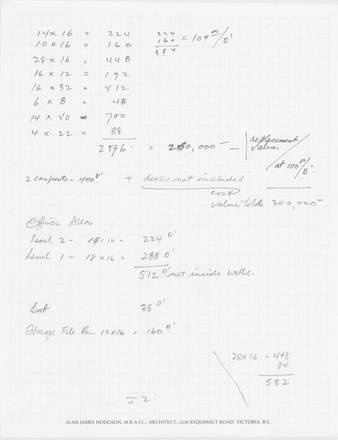 14 x 16 = 224   224
10 x 16 = 160   160 = 104
28 x 16 = 448   384
16 x 12 = 192
16 x 32 = 512
6 x 8 = 48
14 x 50 = 700
4 x 22 = 88
2596 = 260,000 — replacement value at 100
2 carports - 400 + decks not included cost
value total 300,000
Office Area
Level 2 - 14 x 16 = 224
Level 1 - 18 x 16 = 288
512 net inside walls.
25
Storage File Rm 10 x 16 = 160
28 x 16 - 448
84
532
2.
ALAN JAMES HODGSON, M.R.A.I.C., ARCHITECT, ESQUIMALT ROAD, VICTORIA, B.C.